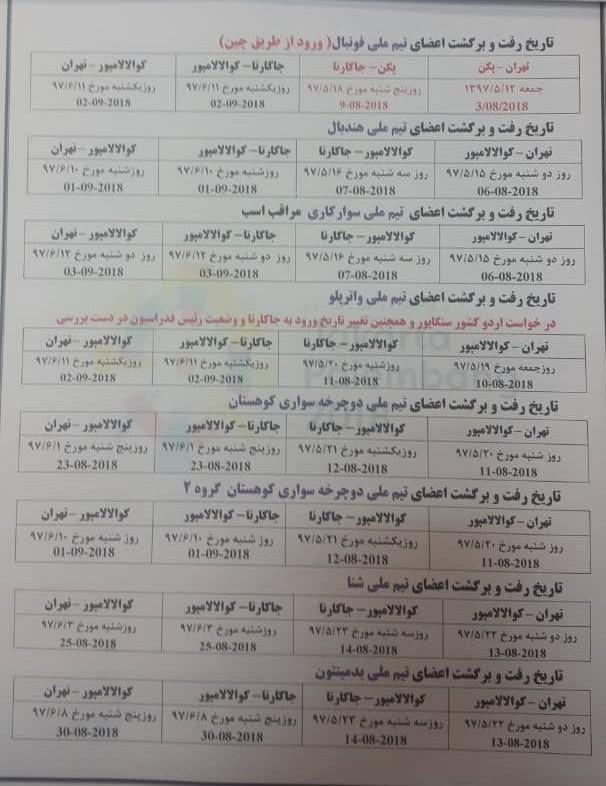 تاریخ رفت و برگشت اعضای تیم ملی فوتبال( ورود از طریق چین)
تهران – پکن پکن – جاکارتا جاکارتا – کوالالامپور کوالالامپور – تهران
جمعه ۱۳۹۷/۵/۱۲ روزپنج شنبه مورخ ۹۷/۵/۱۸ روزیکشنبه مورخ ۹۷/۶/۱۱ روزیکشنبه مورخ ۹۷/۶/۱۱
3/08/2018 9-08-2018 02-09-2018 02-09-2018
تاریخ رفت و برگشت اعضای تیم ملی هندبال
تهران – کوالالامپور کوالالامپور – جاکارتا جاکارتا – کوالالامپور کوالالامپور – تهران
روز دو شنبه مورخ ۹۷/۵/۱۵ روز سه شنبه مورخ ۹۷/۵/۱۶ روزشنبه مورخ ۹۷/۶/۱۰ روزشنبه مورخ ۹۷/۶/۱۰
06-08-2018 07-08-2018 01-09-2018 01-09-2018
تاریخ رفت و برگشت اعضای تیم ملی سوارکاری مراقب اسب
تهران – کوالالامپور کوالالامپور – جاکارتا جاکارتا – کوالالامپور کوالالامپور – تهران
روز دو شنبه مورخ ۹۷/۵/۱۵ روز سه شنبه مورخ ۹۷/۵/۱۶ روز دو شنبه مورخ ۹۷/۶/۱۲ روز دو شنبه مورخ ۹۷/۶/۱۲
06-08-2018 07-08-2018 03-09-2018 03-09-2018
تاریخ رفت و برگشت اعضای تیم ملی واترپلو
در خواست اردو کشور سنگاپور و همچنین تغییر تاریخ ورود به جاکارتا و وضعیت رئیس فدراسیون در دست بررسی
تهران – کوالالامپور کوالالامپور – جاکارتا جاکارتا – کوالالامپور کوالالامپور – تهران
روزجمعه مورخ ۹۷/۵/۱۹ روزشنبه مورخ ۹۷/۵/۲۰ روزیکشنبه مورخ ۹۷/۶/۱۱ روزیکشنبه مورخ ۹۷/۶/۱۱
10-08-2018 11-08-2018 02-09-2018 02-09-2018
تاریخ رفت و برگشت اعضای تیم ملی دوچرخه سواری کوهستان
تهران – کوالالامپور کوالالامپور – جاکارتا جاکارتا – کوالالامپور کوالالامپور – تهران
روز شنبه مورخ ۹۷/۵/۲۰ روزیکشنبه مورخ ۹۷/۵/۲۱ روزپنج شنبه مورخ ۹۷/۶/۱ روزپنج شنبه مورخ ۹۷/۶/۱
11-08-2018 12-08-2018 23-08-2018 23-08-2018
تاریخ رفت و برگشت اعضای تیم ملی دوچرخه سواری کوهستان گروه ۲
تهران – کوالالامپور کوالالامپور – جاکارتا جاکارتا – کوالالامپور کوالالامپور – تهران
روز شنبه مورخ ۹۷/۵/۲۰ روزیکشنبه مورخ ۹۷/۵/۲۱ روز شنبه مورخ ۹۷/۶/۱۰ روز شنبه مورخ ۹۷/۶/۱۰
11-08-2018 12-08-2018 01-09-2018 01-09-2018
تاریخ رفت و برگشت اعضای تیم ملی شنا
تهران – کوالالامپور کوالالامپور – جاکارتا جاکارتا – کوالالامپور کوالالامپور – تهران
روز دو شنبه مورخ ۹۷/۵/۲۲ روزسه شنبه مورخ ۹۷/۵/۲۳ روزشنبه مورخ ۹۷/۶/۳ روزشنبه مورخ ۹۷/۶/۳
13-08-2018 14-08-2018 25-08-2018 25-08-2018
تاریخ رفت و برگشت اعضای تیم ملی بدمینتون
تهران – کوالالامپور کوالالامپور – جاکارتا جاکارتا – کوالالامپور کوالالامپور – تهران
روز دو شنبه مورخ ۹۷/۵/۲۲ روزسه شنبه مورخ ۹۷/۵/۲۳ روزپنج شنبه مورخ ۹۷/۶/۸ روزپنج شنبه مورخ ۹۷/۶/۸
13-08-2018 14-08-2018 30-08-2018 30-08-2018